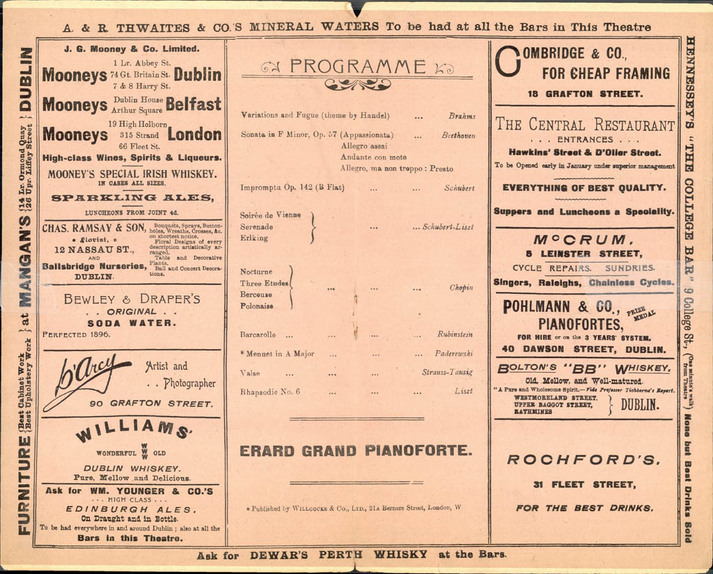 A. & R. THWAITES & CO.'S MINERAL WATERS To be had at all the Bars in This Theatre
FURNITURE {Best Cabinet Work
Best Upholstery Work} at MANGAN'S {14 Lr. Ormond Quay
26 Upr. Liffey Street} DUBLIN
J. G. Mooney & Co. Limited.
Mooneys 1 Lr. Abbey St.
74 Gt. Britain St.
7 & 8 Harry St. Dublin
Mooneys Dublin House
Arthur Square Belfast
Mooneys 19 High Holborn
315 Strand
66 Fleet St. London
High-class Wines, Spirits & Liqueurs.
MOONEY'S SPECIAL IRISH WHISKEY.
IN CASES ALL SIZES.
SPARKLING ALES,
LUNCHEONS FROM JOINT 4d.
CHAS. RAMSAY & SON,
Florist,
12 NASSAU ST.,
AND
Ballsbridge Nurseries,
DUBLIN.
Bouquets, Sprays, Button-
holes, Wreaths, Crosses, &c.
on shortest notice.
Floral Designs of every
description artistically ar-
ranged.
Table and Decorative
Plants.
Ball and Concert Decora-
tions.
BEWLEY & DRAPER'S
. . ORIGINAL . .
SODA WATER.
PERFECTED 1896.
D'Arcy Artist and
. . Photographer
90 GRAFTON STREET.
WILLIAMS'
WONDERFUL W
W
W OLD
DUBLIN WHISKEY.
Pure, Mellow and Delicious.
Ask for WM. YOUNGER & CO.'S
... HIGH CLASS ...
EDINBURGH ALES,
On Draught and in Bottle.
To be had everywhere in and around Dublin; also at all the
Bars in this Theatre.
PROGRAMME
Variations and Fugue (theme by Handel) ... Brahms
Sonata in F Minor, Op. 57 (Appassionata) ... Beethoven
Allegro assai
Andante con moto
Allegro, ma non troppo : Presto
Impromptu Op. 142 (B Flat) ... ... Schubert
Soirée de Vienne
Serenade } ... ... Schubert-Liszt
Erlking
Nocturne
Three Etudes } ... ... ... Chopin
Berceuse
Polonaise
Barcarolle ... ... ... Rubinstein
* Menuet in A Major ... ... Paderewski
Valse ... ... ... Strauss-Tausig
Rhapsodie No. 6 ... ... ... Liszt
ERARD GRAND PIANOFORTE.
* Published by WILLCOCKS & CO., LTD., 21a Berners Street, London, W
COMBRIDGE & CO.,
FOR CHEAP FRAMING
18 GRAFTON STREET.
THE CENTRAL RESTAURANT
. . . ENTRANCES . . .
Hawkins' Street & D'Olier Street.
To be Opened early in January under superior management
EVERYTHING OF BEST QUALITY.
Suppers and Luncheons a Speciality.
MCCRUM,
5 LEINSTER STREET,
CYCLE REPAIRS. SUNDRIES.
Singers, Raleighs, Chainless Cycles.
POHLMANN & CO., PRIZE
MEDAL
PIANOFORTES,
FOR HIRE or on the 3 YEARS' SYSTEM.
40 DAWSON STREET, DUBLIN.
BOLTON'S "BB" WHISKEY,
Old, Mellow, and Well-matured.
"A Pure and Wholesome Spirit."—Vide Professor Tichborne's Report.
WESTMORELAND STREET,
UPPER BAGGOT STREET, } DUBLIN.
RATHMINES
ROCHFORD'S,
31 FLEET STREET,
FOR THE BEST DRINKS.
HENNESSEY'S "THE COLLEGE BAR" 9 College St., (One minute's walk
from Theatre) None but Best Drinks Sold
Ask for DEWAR'S PERTH WHISKY at the Bars.